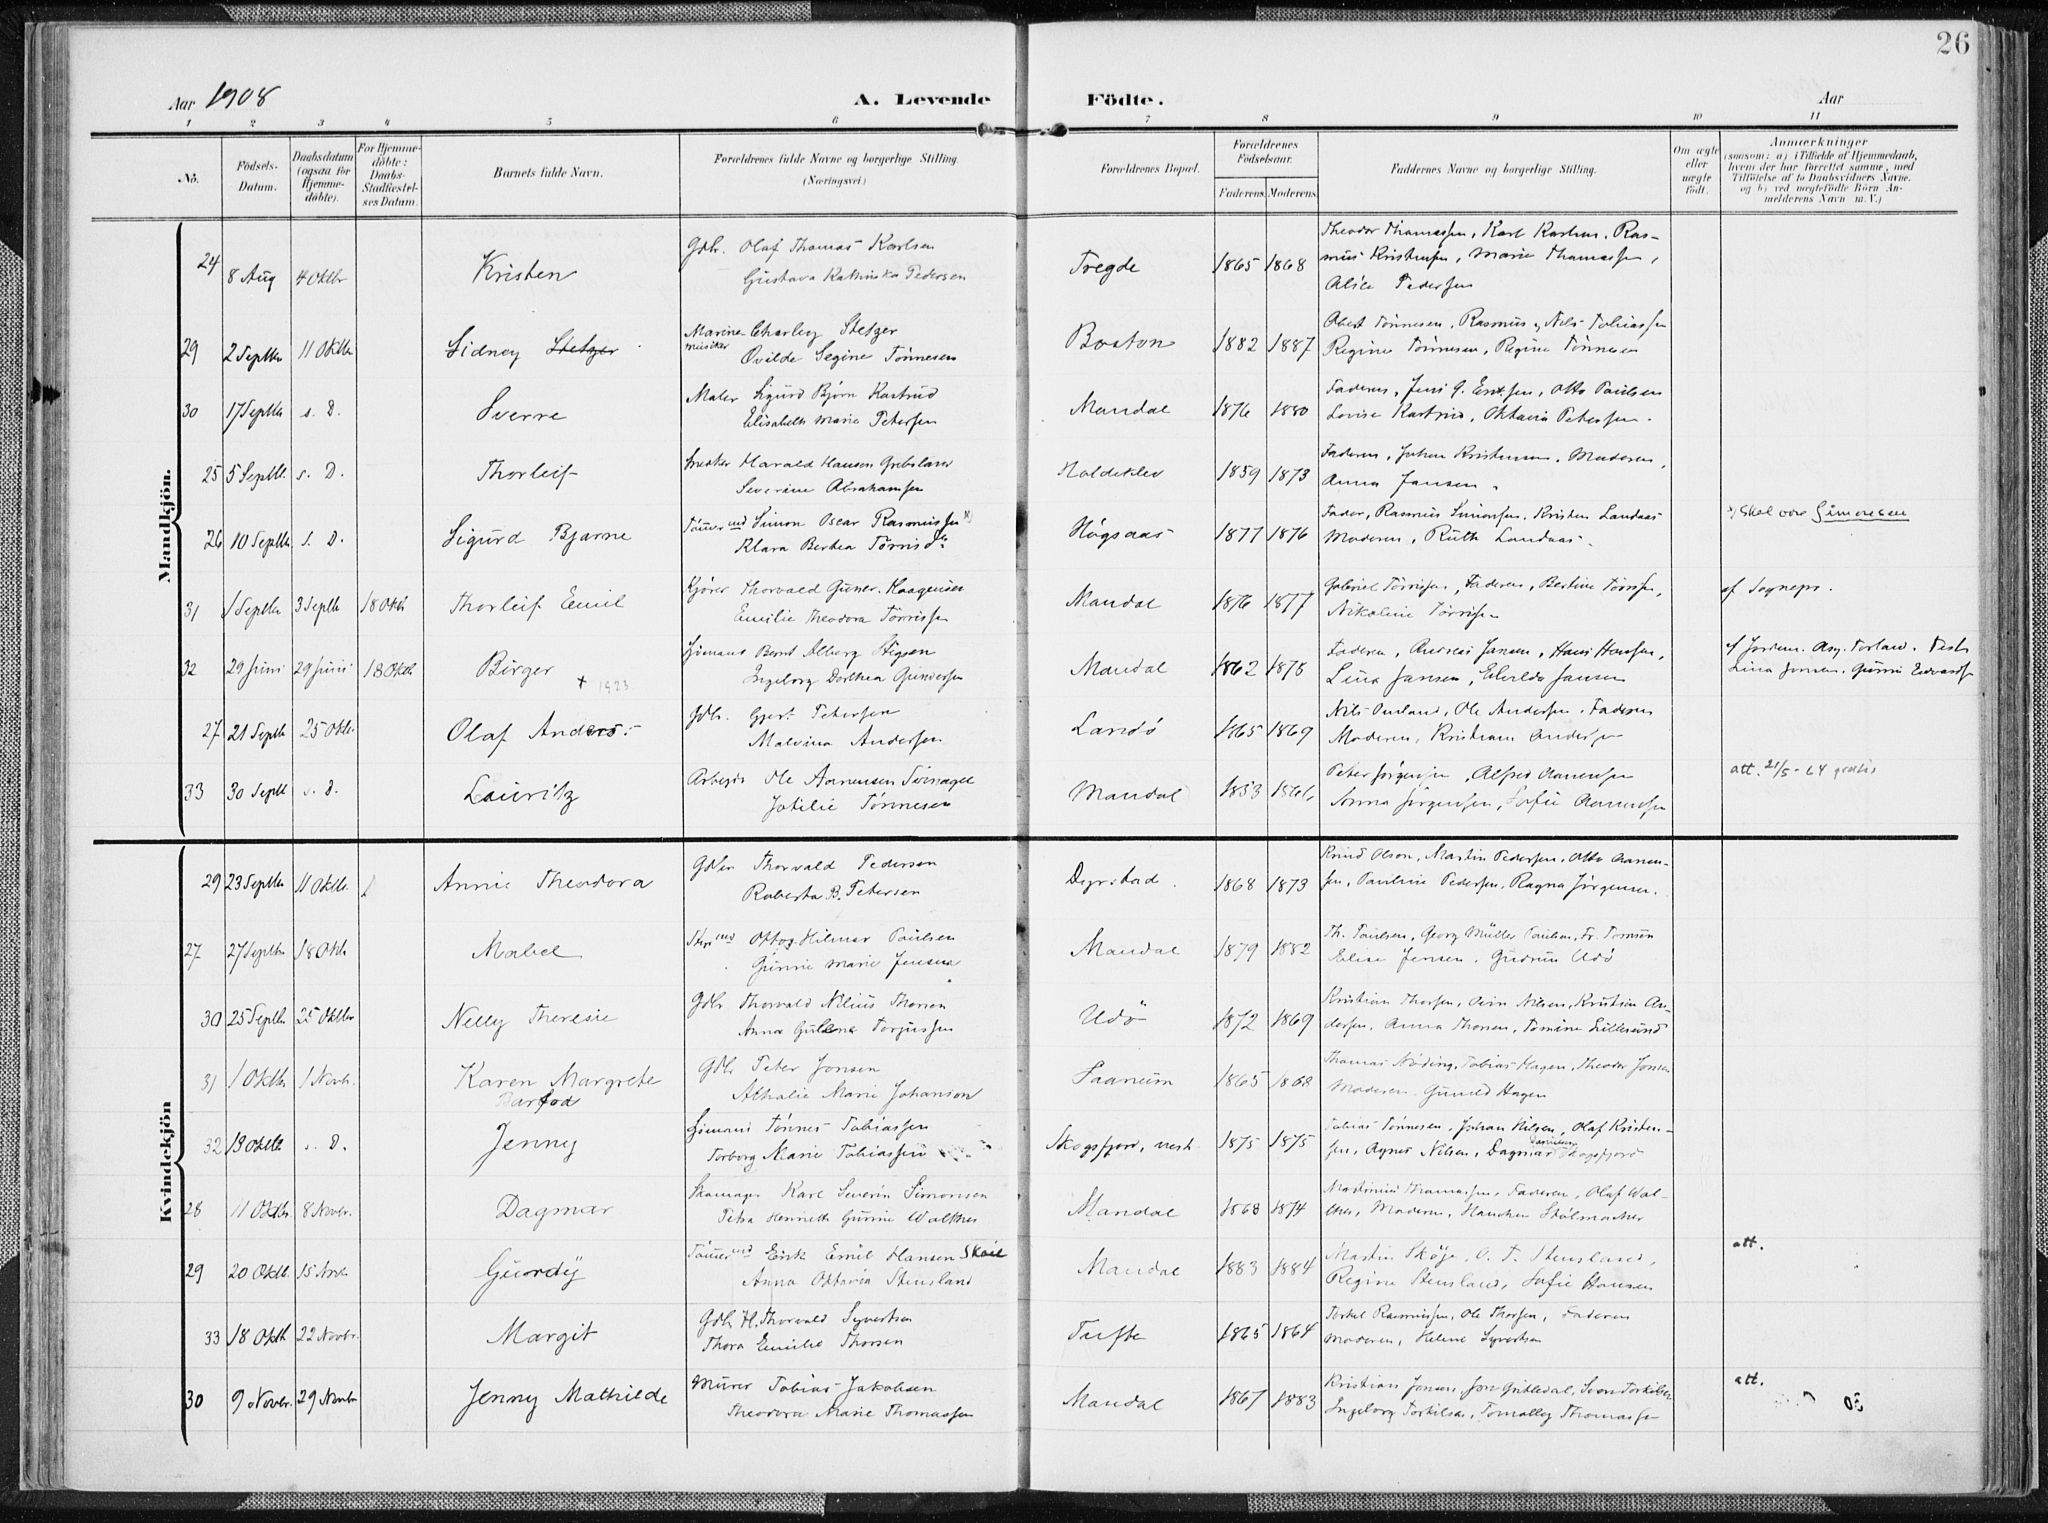 26
Aar 1908
A. Levende Födte.
Aar
1 2 3 4 5 6 7 8 9 10 11
No.
Födsels-
Datum.
Daabsdatum
(ogsaa for
Hjemme-
döbte).
For Hjemme-
döbte:
Daabs-
Stadfæstel-
ses Datum.
Barnets fulde Navn.
Forældrenes fulde Navne og borgerlige Stilling.
(Næringsvei.)
Forældrenes Bopæl.
Forældrenes
Födselsaar.
Faderens. Moderens.
Faddernes Navne og borgerlige Stilling.
Om ægte
eller
uægte
födt.
Anmærkninger
(saasom: a) i Tilfælde af Hjemmedaab,
hvem der har forrettet samme, med
Tilföielse af to Daabsvidners Navne,
og b) ved uægtefödte Börn An-
melderens Navn m. V.)
Mandkjön.
24 8 Aug 4 Oktbr Kristen
Gdb. Olaf Thomas Karlsen
Gustava Kathinka Pedersen
Tregde 1865 1868
Theodor Thomassen, Karl Karlsen, Ras-
mus Kristensen, Marie Thomassen,
Alice Pedersen
29 2 Septbr 11 Oktbr Sidney Stetzer
Marine- Charley Stetzer
musiker Ovilde Regine Tønnesen
Boston 1882 1887
Obert Tønnesen, Rasmus og Nils Tobiassen
Regine Tønnesen, Regine Tønnesen
30 17 Septbr s. D. Sverre
Maler Sigurd Bjørn Kastrud
Elisabeth Marie Petersen
Mandal 1876 1880
Faderen, Jens G. Eriksen, Otto Paulsen
Lovise Kastrud, Oktavia Petersen.
25 5 Septbr. s. D. Thorleif
Snedker Harald Hansen Grebsland
Severine Abrahamsen
Holdeklev 1859 1873
Faderen, Johan Kristensen, Moderen,
Anna Jansen.
26 10 Septbr s. D. Sigurd Bjarne
Tømmermd Simon Oscar Rasmussen x)
Klara Berthea Tørrisd.
Høgsaas 1877 1876
Fader, Rasmus Simonsen, Kristen Landaas
Moderen, Ruth Landaas.
x) Skal være Simonsen
31 1 Septbr 3 Septbr 18 Oktb Thorleif Emil
Kjører Thorvald Guner. Haagensen
Emilie Theodora Tørrissen
Mandal 1876 1877
Gabriel Tørrissen, Faderen, Bertine Tørrissen,
Nikoline Tørrissen
af Sognepr.
32 29 Juni 29 Juni 18 Oktbr Birger + 1923
Sjømand Bernt Alberg Stigsen
Ingeborg Dorthea Gundersen
Mandal 1862 1875
Faderen, Andreas Jansen, Hans Hansen,
Lina Jansen, Elvilda Jansen
27 21 Septb 25 Oktbr Olaf Anders
Gdb. Gjert Petersen
Malvina Andersen
Landø 1865 1869
Nils Omland, Ole Andersen, Faderen
Moderen, Kristiane Andersen
33 30 Septb s. D. Lauritz
Arbeyder Ole Aanensen Svinager
Jokilie Tønnesen
Mandal 1853 1866
Peter Jørgensen, Alfred Aanensen
Anna Jørgensen, Sofie Aanensen
att. 21/5-64 gratis
Kvindekjön
29 23 Septbr 11 Oktbr. Annie Theodora
Gdbr Thorvald Pedersen
Roberta B. Petersen
Dyrstad. 1868 1873
Knud Olson, Martin Pedersen, Otto Aanen-
sen, Pauline Pedersen, Ragna Jørgensen.
27 27 Septbr 18 Oktb Mabel
Styrmd Ottog Hilmar Paulsen
Gunnie Marie Jensen
Mandal 1879 1882
Th. Paulsen, Georg Müller Paulsen, Fr. Tomine
Elise Jensen, Gudrun Udø
30 25 Septbr 25 Oktbr Nelly Theresie
Gdb Thorvald Nilius Thorsen
Anna Gulena Torjussen
Udø 1872 1869
Kristian Thorsen, Sevin Nilsen, Kristian An-
dersen, Anna Thorsen, Tomine Lillesund
31 1 Oktbr 1 Novbr. Karen Margrete
Barfod
Gdb Peter Jonsen
Athalie Marie Johanson
Saanum 1865 1868
Thomas Nøding, Tobias Hagen, Theodor Jonsen
Moderen, Gunild Hagen
32 13 Oktbr s. D. Jenny
Sjømand Tønnes Tobiassen
Torborg Marie Tobiassen
Skogsfjord, vestr. 1875 1875
Tobias Tønnesen, Johan Nilsen, Olaf Kristen-
sen, Agnes Nilsen, Dagmar Skogsfjord
28 11 Oktbr. 8 Novbr. Dagmar
Skomager Karl Severin Simonsen
Petra Henriette Gunnie Walther
Mandal 1868 1874
Martinius Thomassen, Faderen, Olaf Wal-
ther, Moderen, Hanchen Stolmacher
29 20 Oktb. 15 Nov. Guordy
Tømmermd Eirik Emil Hansen Skøie
Anna Oktavia Stensland
Mandal 1883 1884
Martin Skøje, O. T. Stensland,
Regine Stensland, Sofie Hansen
att.
33 18 Oktb 22 Novbr. Margit
Gdb H. Thorvald Syvertsen
Thora Emilie Thorsen
Tufte 1865 1864
Torkel Rasmussen, Ole Thorsen, Faderen
Moderen, Helene Syvertsen
30 9 Novbr. 29 Novbr Jenny Mathilde
Murer Tobias Jakobsen
Theodora Marie Thomassen
Mandal 1867 1883
Kristian Jonsen, Jon Gitledal, Sven Torkilsen
Ingeborg Torkilsen, Tomally Thomassen
att.